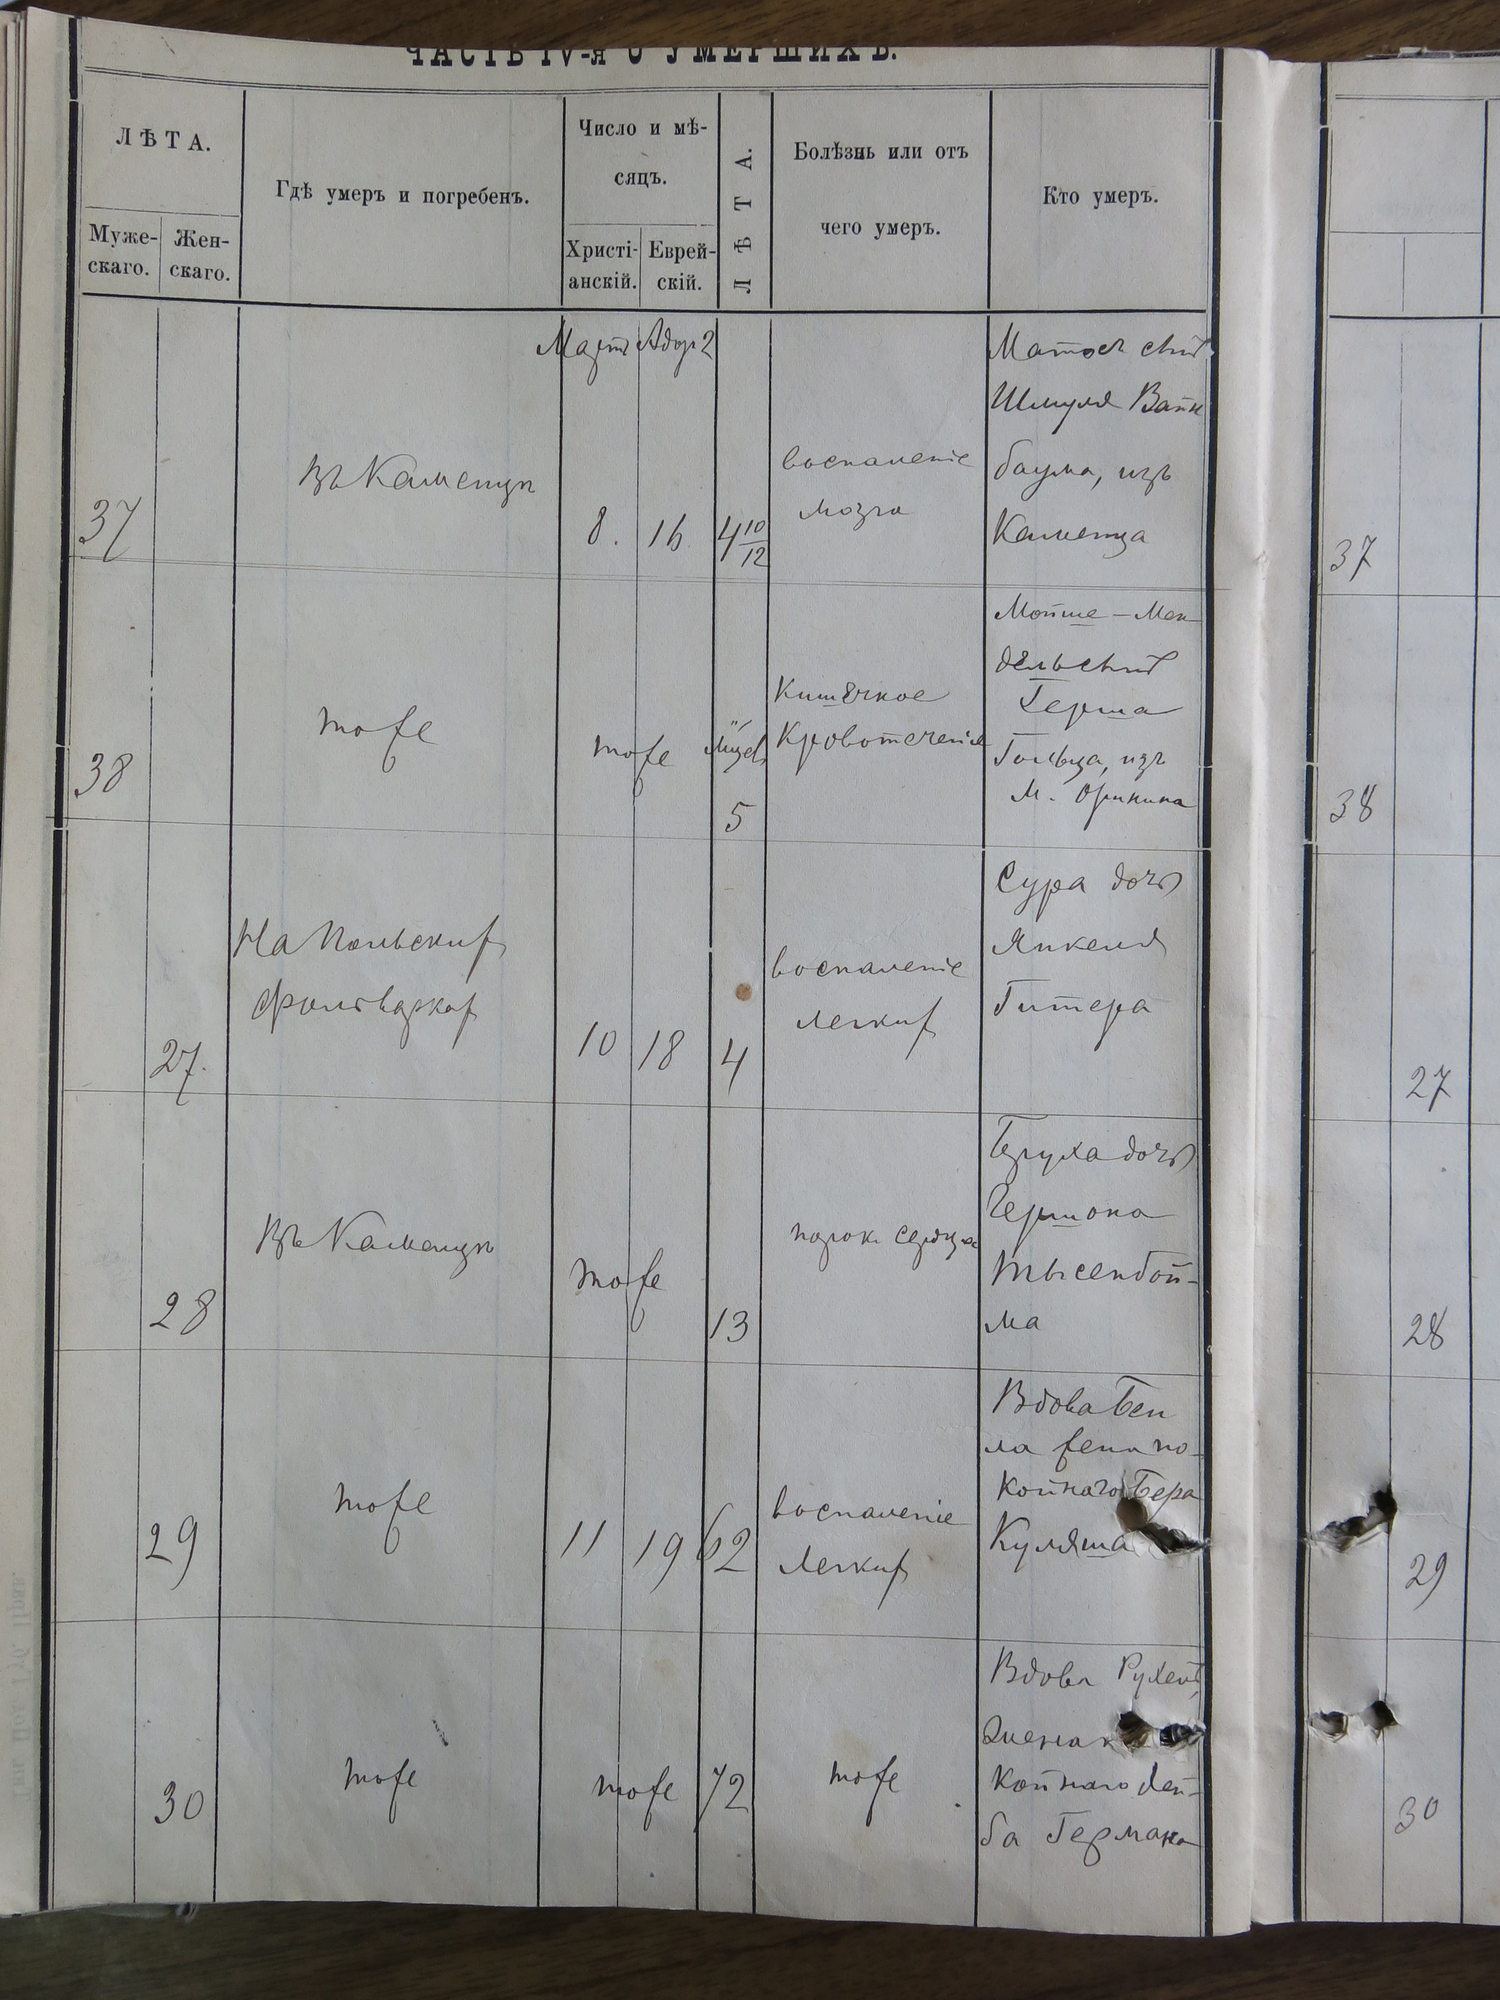 ЧАСТЬ IV-я О УМЕРШИХЪ.
ЛѢТА.
Муже-
скаго.
Жен-
скаго.
Гдѣ умеръ и погребенъ.
Число и мѣ-
сяцъ.
Христі-
анскій.
Еврей-
скій.
ЛѢТА.
Болѣзнь или отъ
чего умеръ.
Кто умеръ.
37
Въ Каменцѣ
Мартъ
8.
Адоръ 2
16
4 10/12
воспаленіе
мозга
Матосъ сынъ
Шмуля Вайн
баума, изъ
Каменца
37
38
тоже
тоже
Мцев
5
Кишечное
Кровотеченіе
Мойше-Мен
дель сынъ
Герша
Гольца, изъ
М. Оринина
38
27.
На Польскихъ
фольваркахъ
10
18
4
воспаленіе
легкихъ
Сура дочь
Янкеля
Гитера
27
28
Въ Каменцѣ
тоже
13
порокъ сердца
Бруха дочь
Гершона
Тысенбой-
ма
28
29
тоже
11
19
62
воспаленіе
легкихъ
Вдова Бей
ла жена по-
койнаго Бера
Куляша
29
30
тоже
тоже
72
тоже
Вдова Рухель,
койнаго Лей-
ба Германа
30